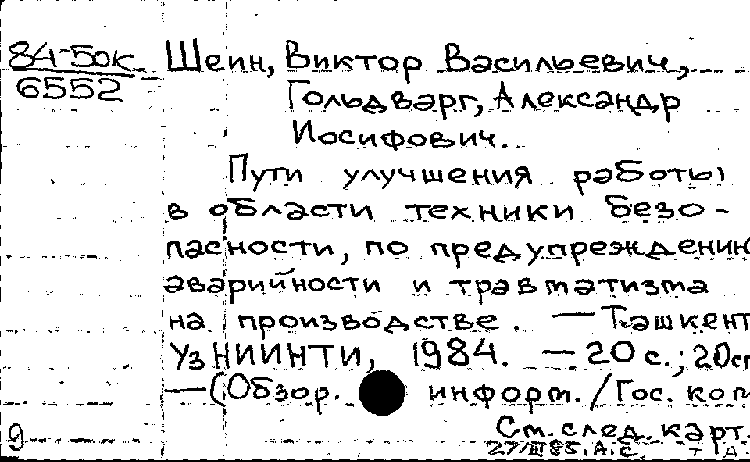 84-50к Шеин, Виктор Васильевич,
6552 Гольдварг, Александр
Иосифович.
Пути улучшения работы
в области техники безо-
пасности, по предупреждению
аварийности и травматизма
на производстве. — Ташкент
УзНИИНТИ, 1984. — 20 с.; 20 см
— (Обзор. информ. / Гос. ком
См. след. карт.
9 27/III 85. А.С.